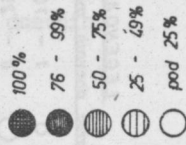 100%
76 - 99%
50 - 75%
25 - 49%
pod 25%